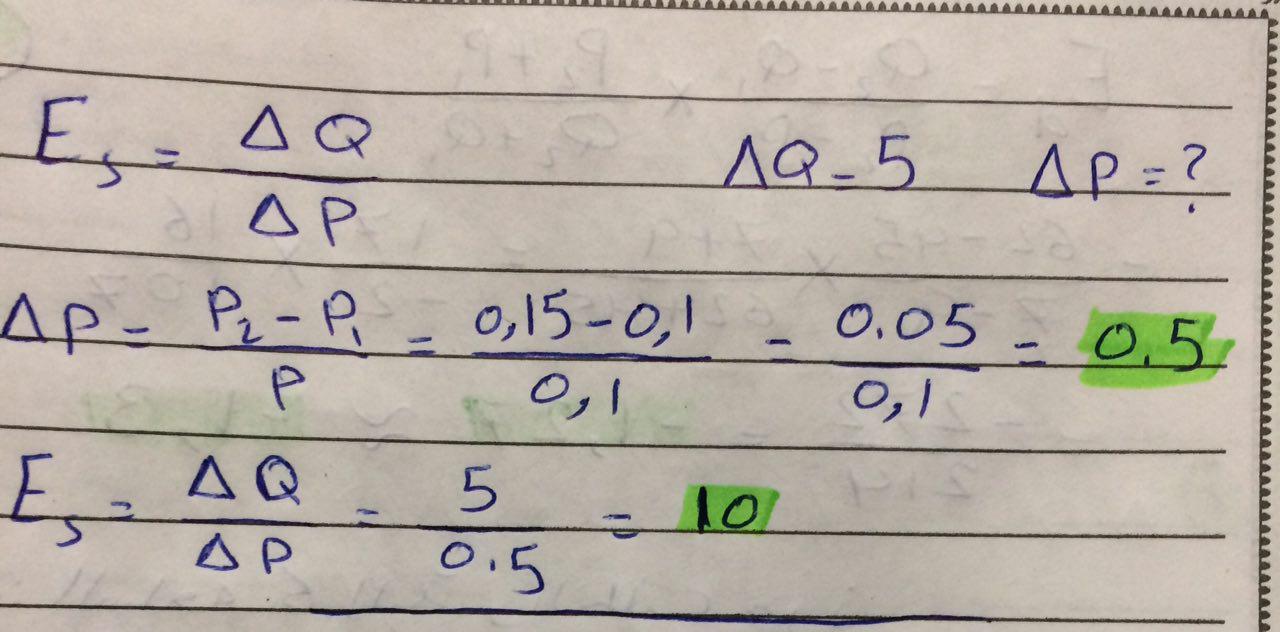 E_s = ΔQ / ΔP    ΔQ = 5    ΔP = ?
ΔP = (P₂ - P₁) / P = (0,15 - 0,1) / 0,1 = 0.05 / 0,1 = 0.5
E_s = ΔQ / ΔP = 5 / 0.5 = 10